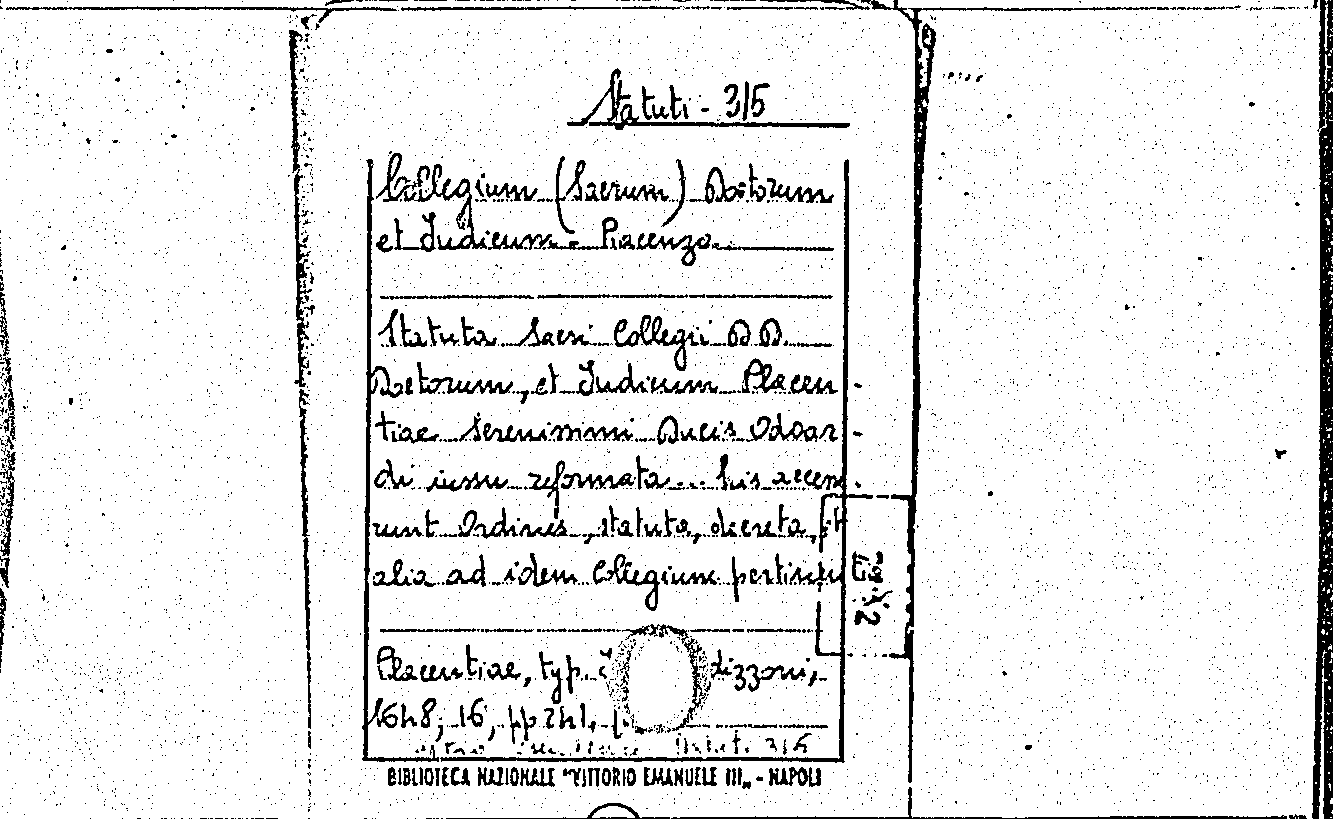 Statuti - 315
Collegium (Sacrum) Doctorum
et Judicum - Piacenza.
Statuta Sacri Collegii D D.
Doctorum, et Judicum Placen-
tiae Serenissimi Ducis Odoar-
di iussu reformata... his acces-
runt Ordines, statuta, decreta, et
alia ad idem Collegium pertinen
Placentiae, typ. dizzoni,
1648, 16, pp 241.
Statuti 315
BIBLIOTECA NAZIONALE "VITTORIO EMANUELE III„ - NAPOLI